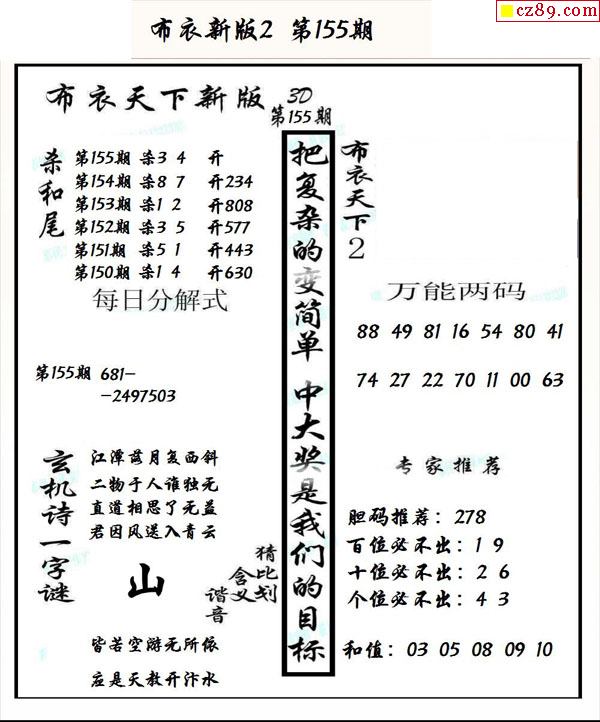 cz89.com
布衣新版2 第155期
布衣天下新版 3D
第155期
杀和尾
第155期 杀3 4 开
第154期 杀8 7 开234
第153期 杀1 2 开808
第152期 杀3 5 开577
第151期 杀5 1 开443
第150期 杀1 4 开630
每日分解式
第155期 681-
-2497503
玄机诗一字谜
江潭落月复西斜
二物于人谁独无
直道相思了无益
君因风送入青云
山
猜比划
含义
谐音
皆若空游无所依
应是天教开汴水
把复杂的变简单 中大奖是我们的目标
布衣天下2
万能两码
88 49 81 16 54 80 41
74 27 22 70 11 00 63
专家推荐
胆码推荐：278
百位必不出：1 9
十位必不出：2 6
个位必不出：4 3
和值：03 05 08 09 10